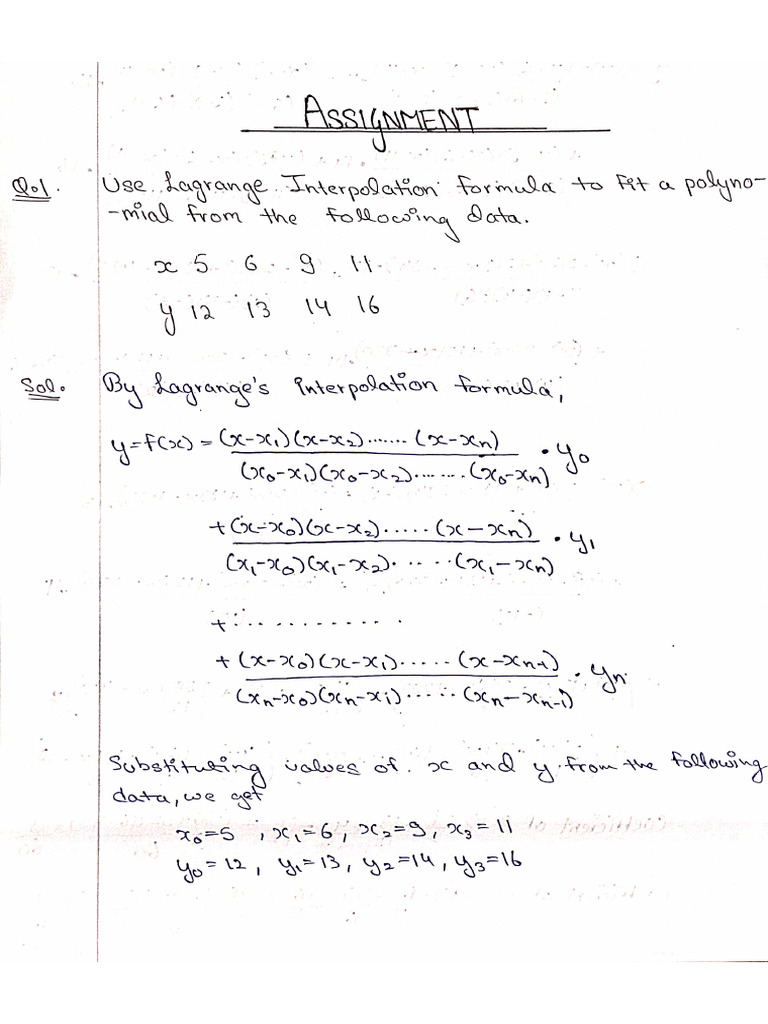 ASSIGNMENT
Q01. Use Lagrange Interpolation formula to fit a polyno-
-mial from the following data.
x 5 6 9 11
y 12 13 14 16
Sol. By Lagrange's interpolation formula,
y=f(x) = (x-x₁)(x-x₂)....... (x-xₙ)
(x₀-x₁)(x₀-x₂)....... (x₀-xₙ) · y₀
+(x-x₀)(x-x₂)..... (x-xₙ)
(x₁-x₀)(x₁-x₂)..... (x₁-xₙ) · y₁
+...........
+(x-x₀)(x-x₁)..... (x-xₙ₋₁)
(xₙ-x₀)(xₙ-x₁)..... (xₙ-xₙ₋₁) · yₙ
Substituting values of x and y from the following
data, we get
x₀=5 , x₁=6, x₂=9, x₃=11
y₀=12, y₁=13, y₂=14, y₃=16